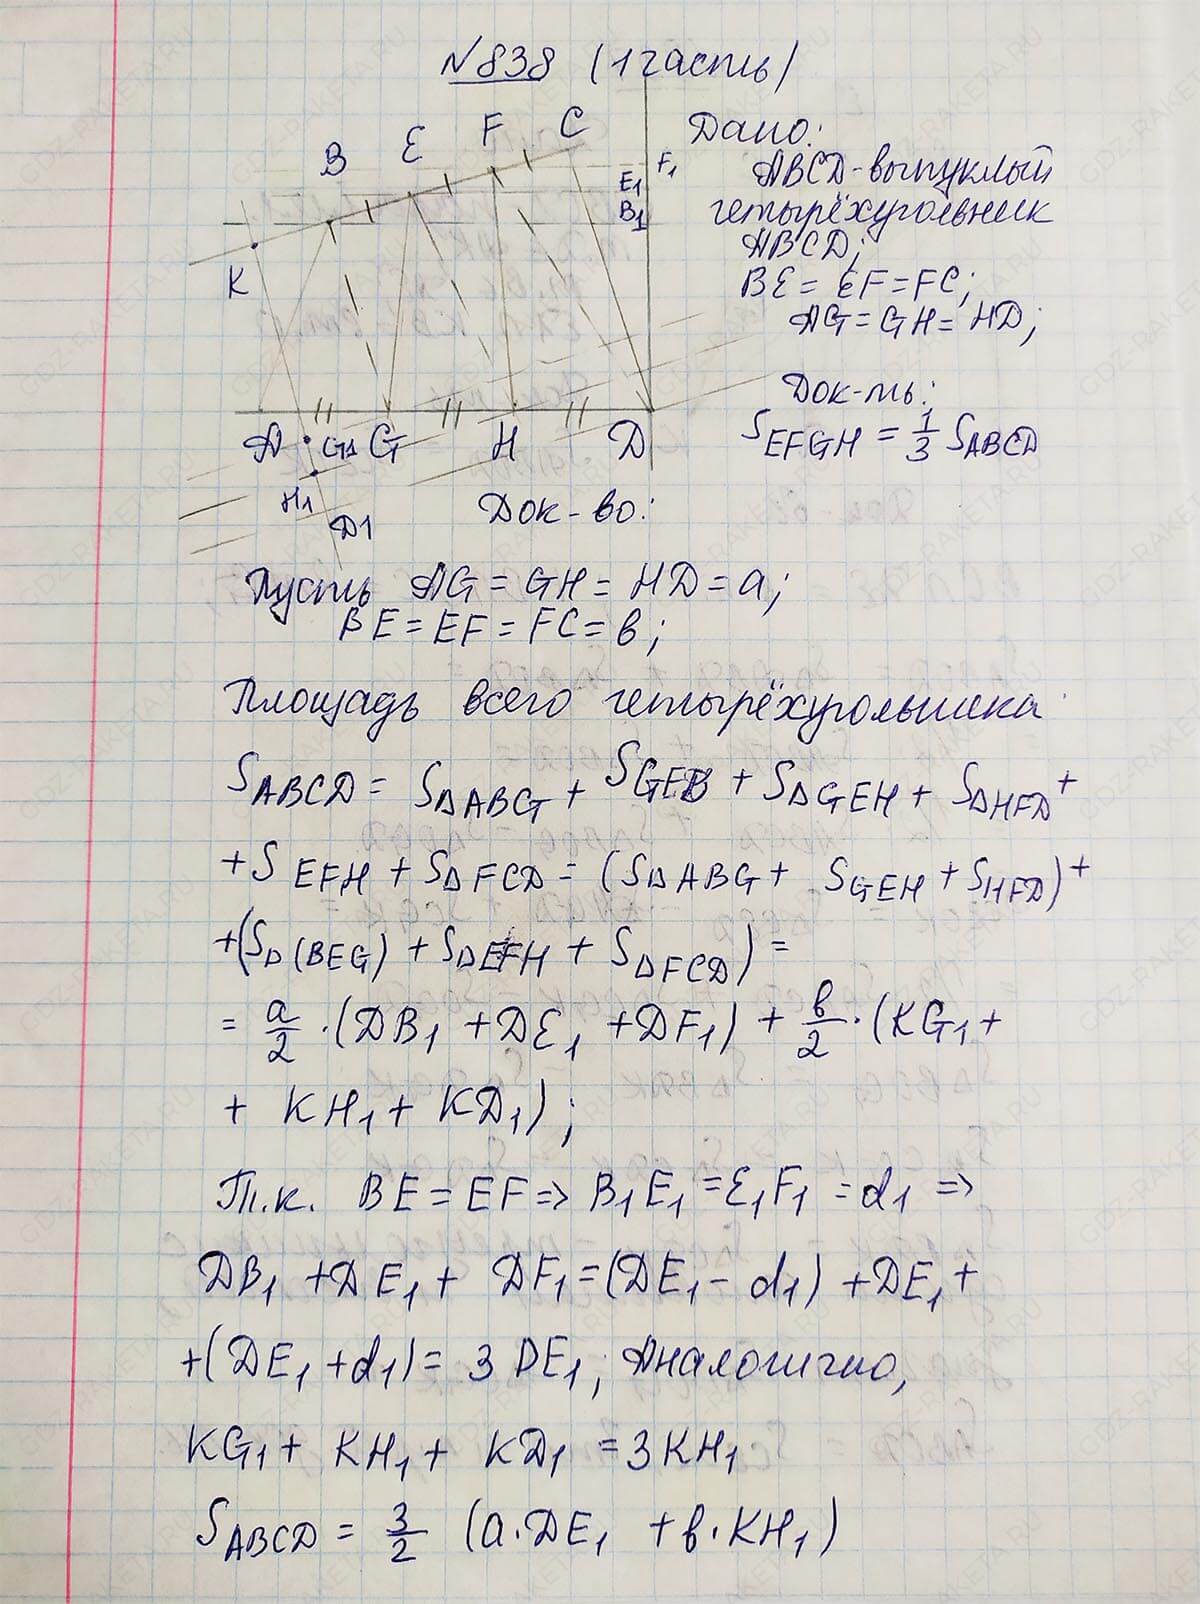 №838 (1 часть)
B E F C
F1
E1
B1
K
A G1 G H D
H1
D1
Дано:
ABCD-выпуклый
четырёхугольник
ABCD;
BE = EF = FC;
AG = GH = HD;
Док-ть:
S EFGH = 1/3 S ABCD
Док-во:
Пусть AG = GH = HD = a;
BE = EF = FC = b;
Площадь всего четырёхугольника
S ABCD = S△ABG + S GEB + S△GEH + S△HFD +
+ S EFH + S△FCD = (S△ABG + S GEH + S HFD) +
+ (S△(BEG) + S△EFH + S△FCD) =
= a/2 · (DB1 + DE1 + DF1) + b/2 · (KG1 +
+ KH1 + KD1);
Т.к. BE = EF => B1E1 = E1F1 = d1 =>
DB1 + DE1 + DF1 = (DE1 - d1) + DE1 +
+ (DE1 + d1) = 3 DE1; Аналогично,
KG1 + KH1 + KD1 = 3KH1
S ABCD = 3/2 (a·DE1 + b·KH1)